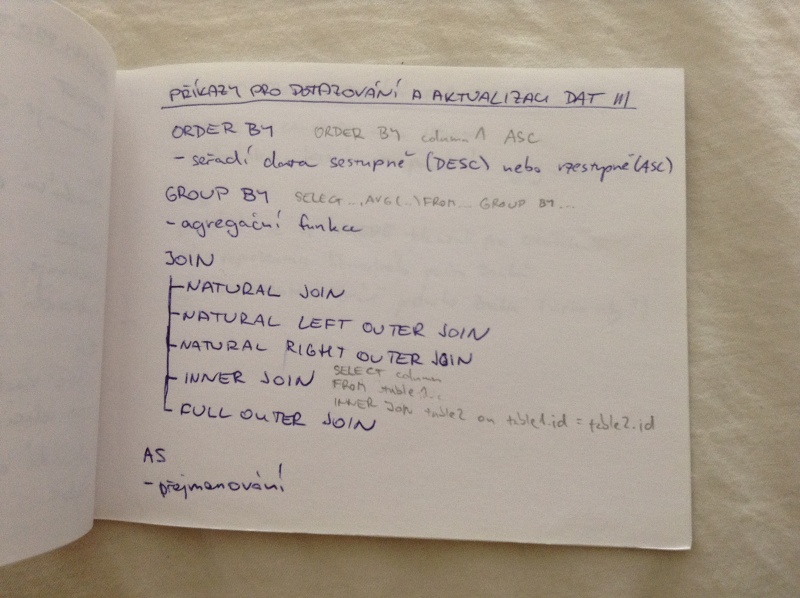 PŘÍKAZY PRO DOTAZOVÁNÍ A AKTUALIZACI DAT III
ORDER BY ORDER BY column1 ASC
- seřadí data sestupně (DESC) nebo vzestupně (ASC)
GROUP BY SELECT..., AVG(..) FROM... GROUP BY...
- agregační funkce
JOIN
- NATURAL JOIN
- NATURAL LEFT OUTER JOIN
- NATURAL RIGHT OUTER JOIN
- INNER JOIN SELECT column
FROM table1...
INNER JOIN table2 on table1.id = table2.id
- FULL OUTER JOIN
AS
- přejmenování